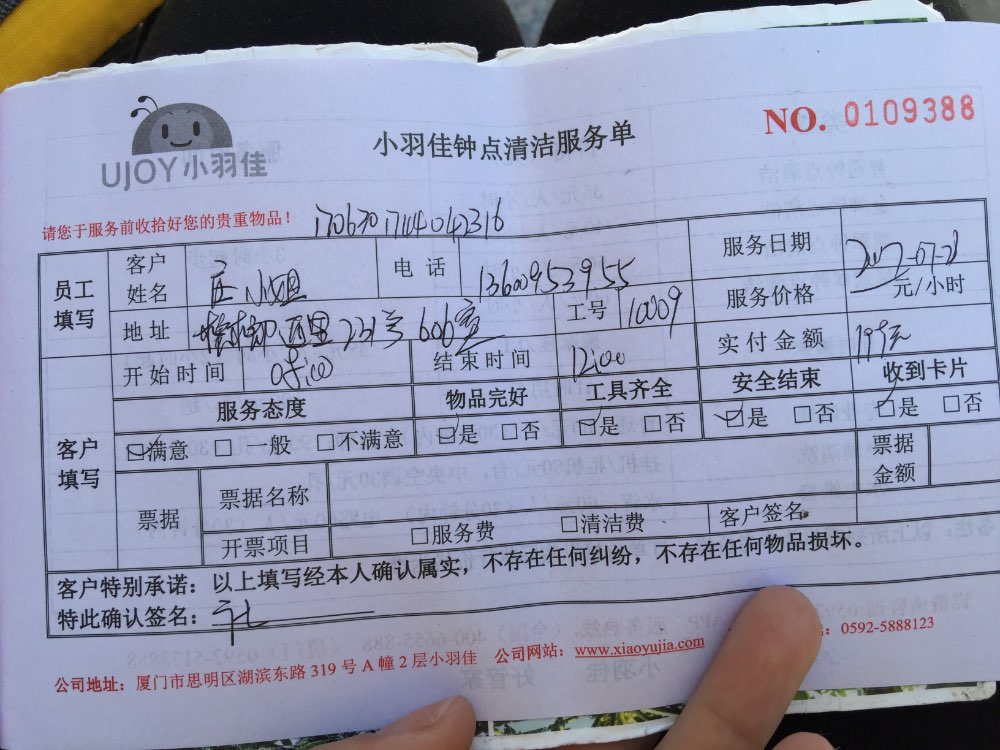 UJOY小羽佳
小羽佳钟点清洁服务单
NO. 0109388
请您于服务前收拾好您的贵重物品！
170630171404042316
员工填写
客户姓名 小姐
电话 13600953955
服务日期 2017-07-21
地址 西里231号606室
工号 10009
服务价格 元/小时
开始时间 08:00
结束时间 12:00
实付金额 199元
客户填写
服务态度 物品完好 工具齐全 安全结束 收到卡片
☑满意 □一般 □不满意 ☑是 □否 ☑是 □否 ☑是 □否 ☑是 □否
票据
票据名称
票据金额
开票项目 □服务费 □清洁费 客户签名
客户特别承诺：以上填写经本人确认属实，不存在任何纠纷，不存在任何物品损坏。
特此确认签名：
公司地址：厦门市思明区湖滨东路 319 号 A 幢 2 层小羽佳 公司网站：www.xiaoyujia.com 0592-5888123